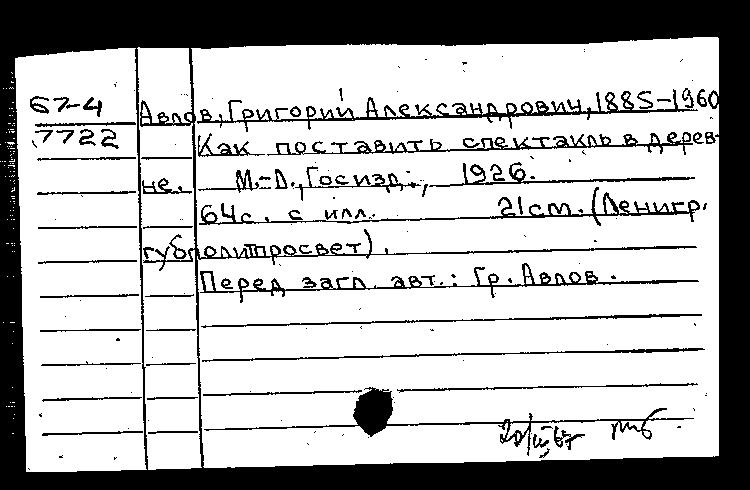 67-4 Авлов, Григорий Александрович, 1885-1960
7722 Как поставить спектакль в дерев-
не. М.-Л., Госизд., 1926.
64с. с илл. 21см. (Ленигр.
губполитпросвет).
Перед загл. авт.: Гр. Авлов.
20/III 67